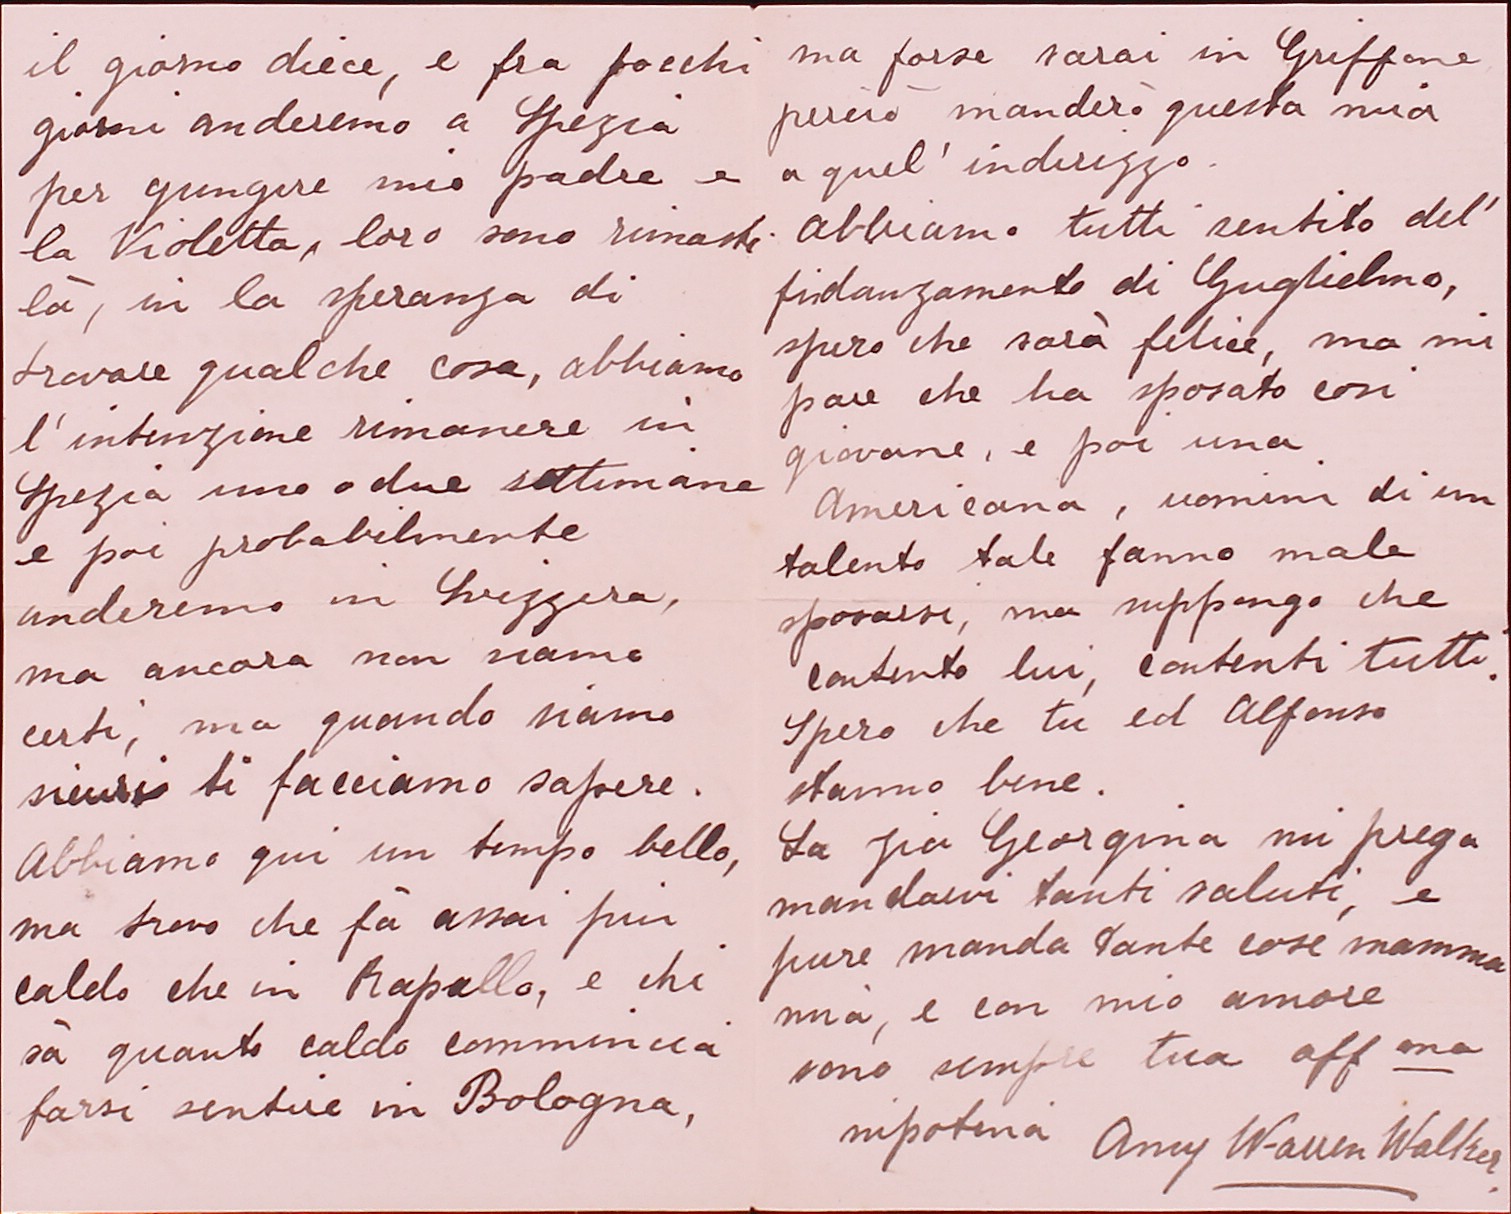 il giorno diece, e fra pocchi
giorni anderemo a Spezia
per giungire mio padre e
la Violetta, loro sono rimasti
là, in la speranza di
trovare qualche cosa, abbiamo
l'intenzione rimanere in
Spezia uno o due settimane
e poi probabilmente
anderemo in Svizzera,
ma ancora non siamo
certi, ma quando siamo
sicuri ti facciamo sapere.
Abbiamo qui un tempo bello,
ma trovo che fà assai più
caldo che in Rapallo, e chi
sà quanto caldo commincia
farsi sentire in Bologna,
ma forse sarai in Griffone
perciò manderò questa mia
a quel' indirizzo.
Abbiamo tutti sentito del'
fidanzamento di Guglielmo,
spero che sarà felice, ma mi
pare che ha sposato così
giovane, e poi una
Americana, uomini di un
talento tale fanno male
sposarsi, ma suppongo che
contento lui, contenti tutti.
Spero che tu ed Alfonso
stanno bene.
La zia Georgina mi prega
mandarvi tanti saluti, e
pure manda tante cose mamma
mia, e con mio amore
sono sempre tua aff ma
nipotina Amy Warren Walker.